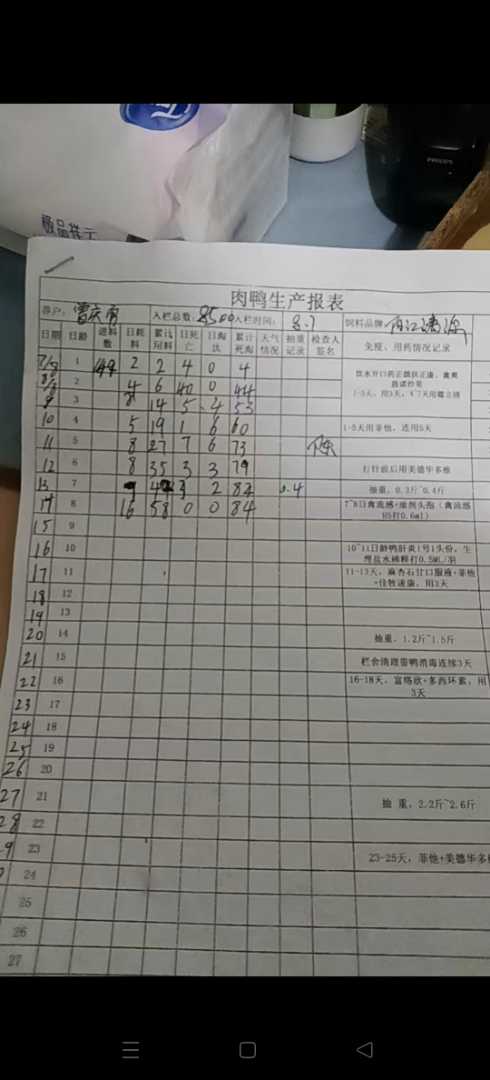 极品祥云
PHILIPS
肉鸭生产报表
养户: 入栏总数: 8500 入栏时间: 8.7 饲料品牌
日期 日龄 进料数 日耗料 累计用料 日死亡 日淘汰 累计死淘 天气情况 抽重记录 检查人签名 免疫、用药情况记录
7/8 1 2 2 4 0 4
8/8 2 4 6 40 0 44 1-3天,用3天,
9 3 8 14 5 4 53
10 4 5 19 1 6 60 1-5天用菲他,连用5天
11 5 8 27 7 6 73
12 6 8 35 3 3 79 打针前后用美德华多维
13 7 3 2 84 0.4 抽重,0.3斤~0.4斤
14 8 16 58 0 0 84 7~8日禽流感+浆剂头孢(禽流感H5打0.6ml)
15 9
16 10 10~11日龄鸭肝炎1号1头份,生理盐水稀释打0.5ML/羽
17 11 11-13天,麻杏石甘口服液+菲他+佳牧速康,用3天
18 12
19 13
20 14 抽重,1.2斤~1.5斤
21 15 栏舍清理带鸭消毒连续3天
22 16 16-18天,富络欣+多西环素,用3天
23 17
24 18
25 19
26 20
27 21 抽 重,2.2斤~2.6斤
28 22
9 23 23-25天,菲他+美德华多
24
25
26
27